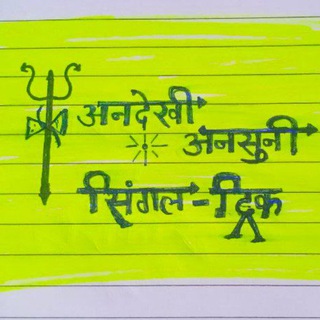 अनदेखी
अनसुनी
सिंगल - ट्रिक